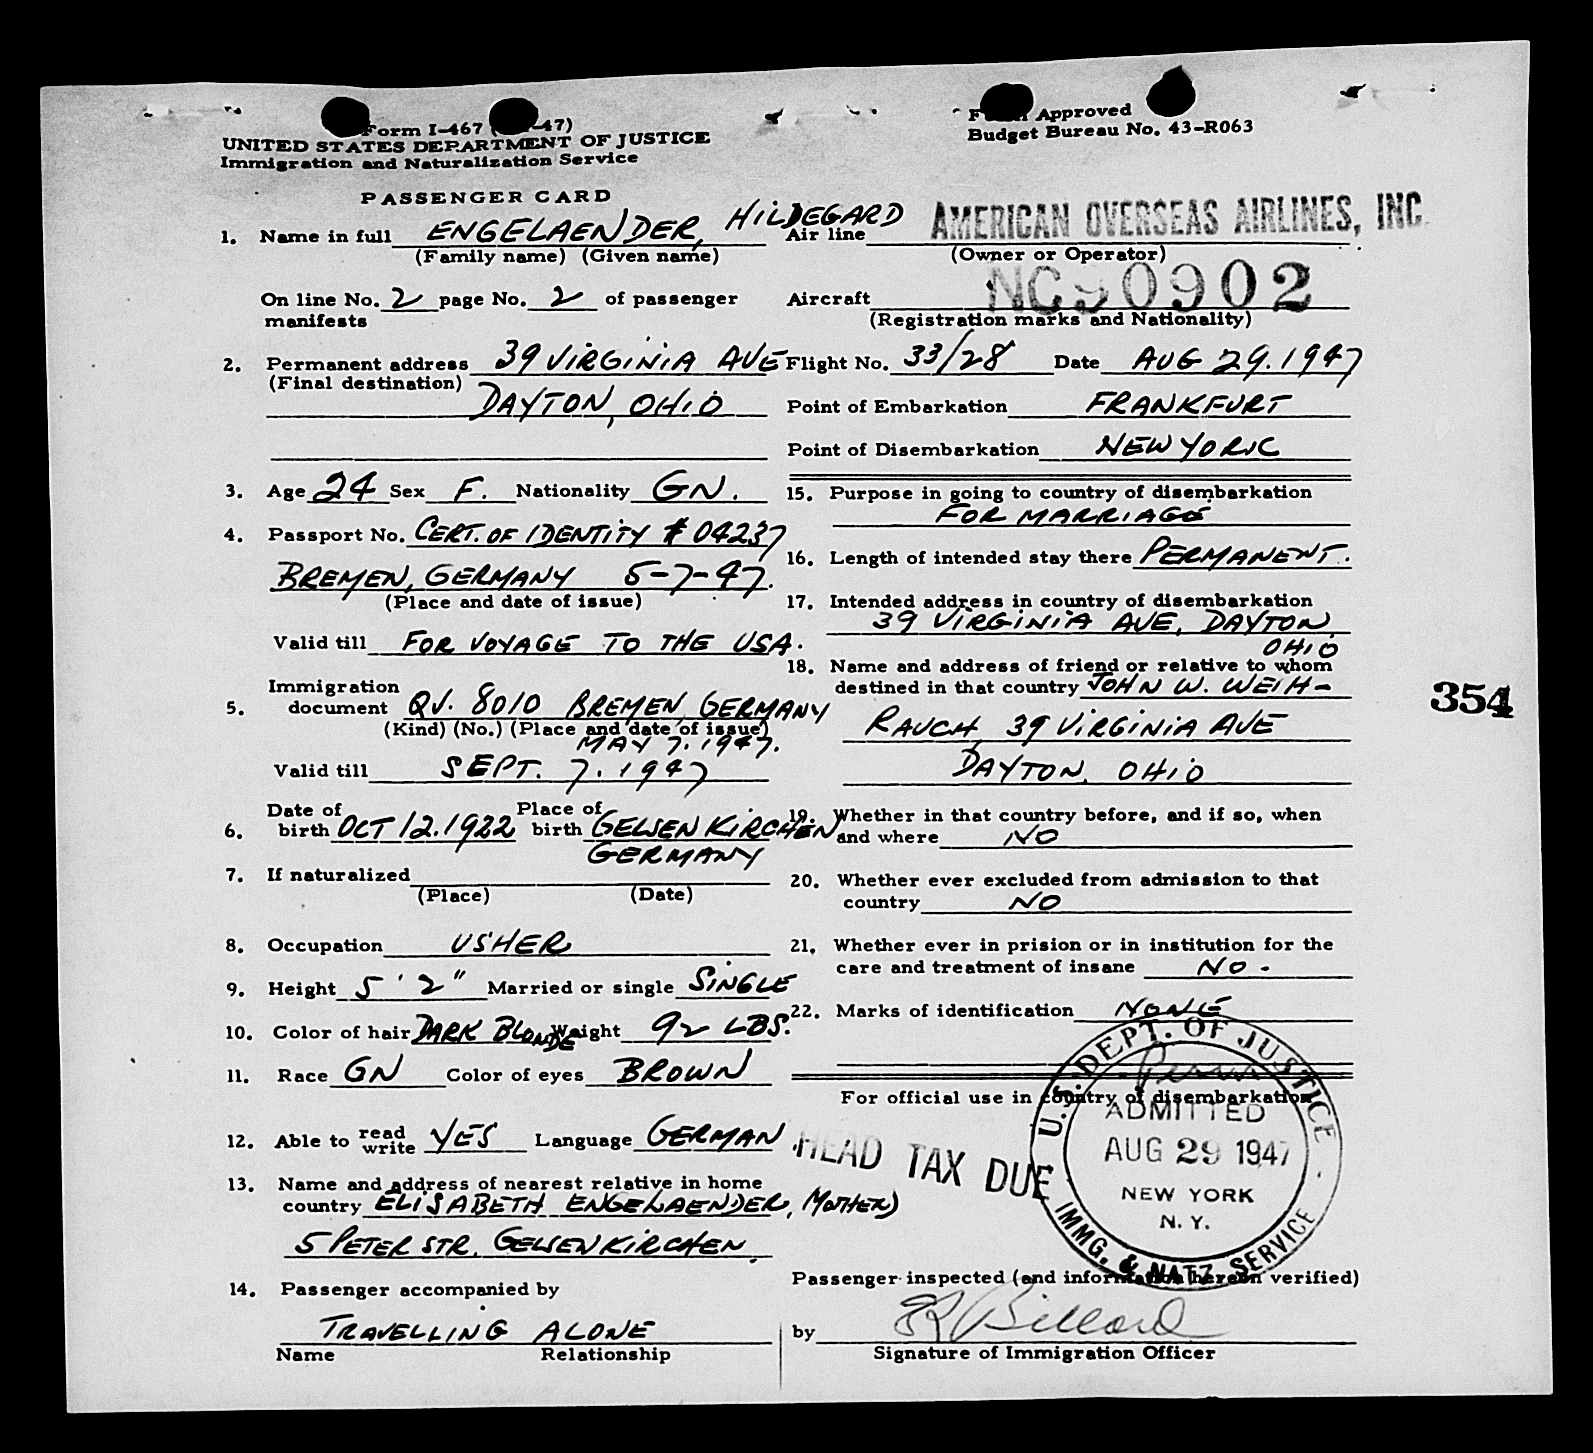 Form I-467 ( -47)
UNITED STATES DEPARTMENT OF JUSTICE
Immigration and Naturalization Service
Approved
Budget Bureau No. 43-R063
PASSENGER CARD
1. Name in full ENGELAENDER, HILDEGARD
(Family name) (Given name)
On line No. 2 page No. 2 of passenger
manifests
2. Permanent address 39 VIRGINIA AVE
(Final destination)
DAYTON, OHIO
3. Age 24 Sex F. Nationality GN.
4. Passport No. CERT. OF IDENTITY # 04237
BREMEN, GERMANY 5-7-47.
(Place and date of issue)
Valid till FOR VOYAGE TO THE USA.
5. Immigration
document QV. 8010 BREMEN, GERMANY
(Kind) (No.) (Place and date of issue)
MAY 7. 1947.
Valid till SEPT. 7. 1947
6. Date of birth OCT 12. 1922 Place of birth GELSENKIRCHEN
GERMANY
7. If naturalized
(Place) (Date)
8. Occupation USHER
9. Height 5' 2" Married or single SINGLE
10. Color of hair DARK BLONDE Weight 92 LBS.
11. Race GN Color of eyes BROWN
12. Able to read write YES Language GERMAN
13. Name and address of nearest relative in home
country ELISABETH ENGELAENDER, (MOTHER)
5 PETER STR. GELSENKIRCHEN.
14. Passenger accompanied by
TRAVELLING ALONE
Name Relationship
Air line AMERICAN OVERSEAS AIRLINES, INC.
(Owner or Operator)
Aircraft NC90902
(Registration marks and Nationality)
Flight No. 33/28 Date AUG 29. 1947
Point of Embarkation FRANKFURT
Point of Disembarkation NEW YORK
15. Purpose in going to country of disembarkation
FOR MARRIAGE
16. Length of intended stay there PERMANENT.
17. Intended address in country of disembarkation
39 VIRGINIA AVE, DAYTON
OHIO
18. Name and address of friend or relative to whom
destined in that country JOHN W. WEIH-
RAUCH, 39 VIRGINIA AVE
DAYTON, OHIO
354
19. Whether in that country before, and if so, when
and where NO
20. Whether ever excluded from admission to that
country NO
21. Whether ever in prision or in institution for the
care and treatment of insane NO.
22. Marks of identification NONE
For official use in country of disembarkation
HEAD TAX DUE
U.S. DEPT. OF JUSTICE
ADMITTED
AUG 29 1947
NEW YORK
N. Y.
IMMG. & NATZ. SERVICE
Passenger inspected (and information hereon verified)
by
Signature of Immigration Officer